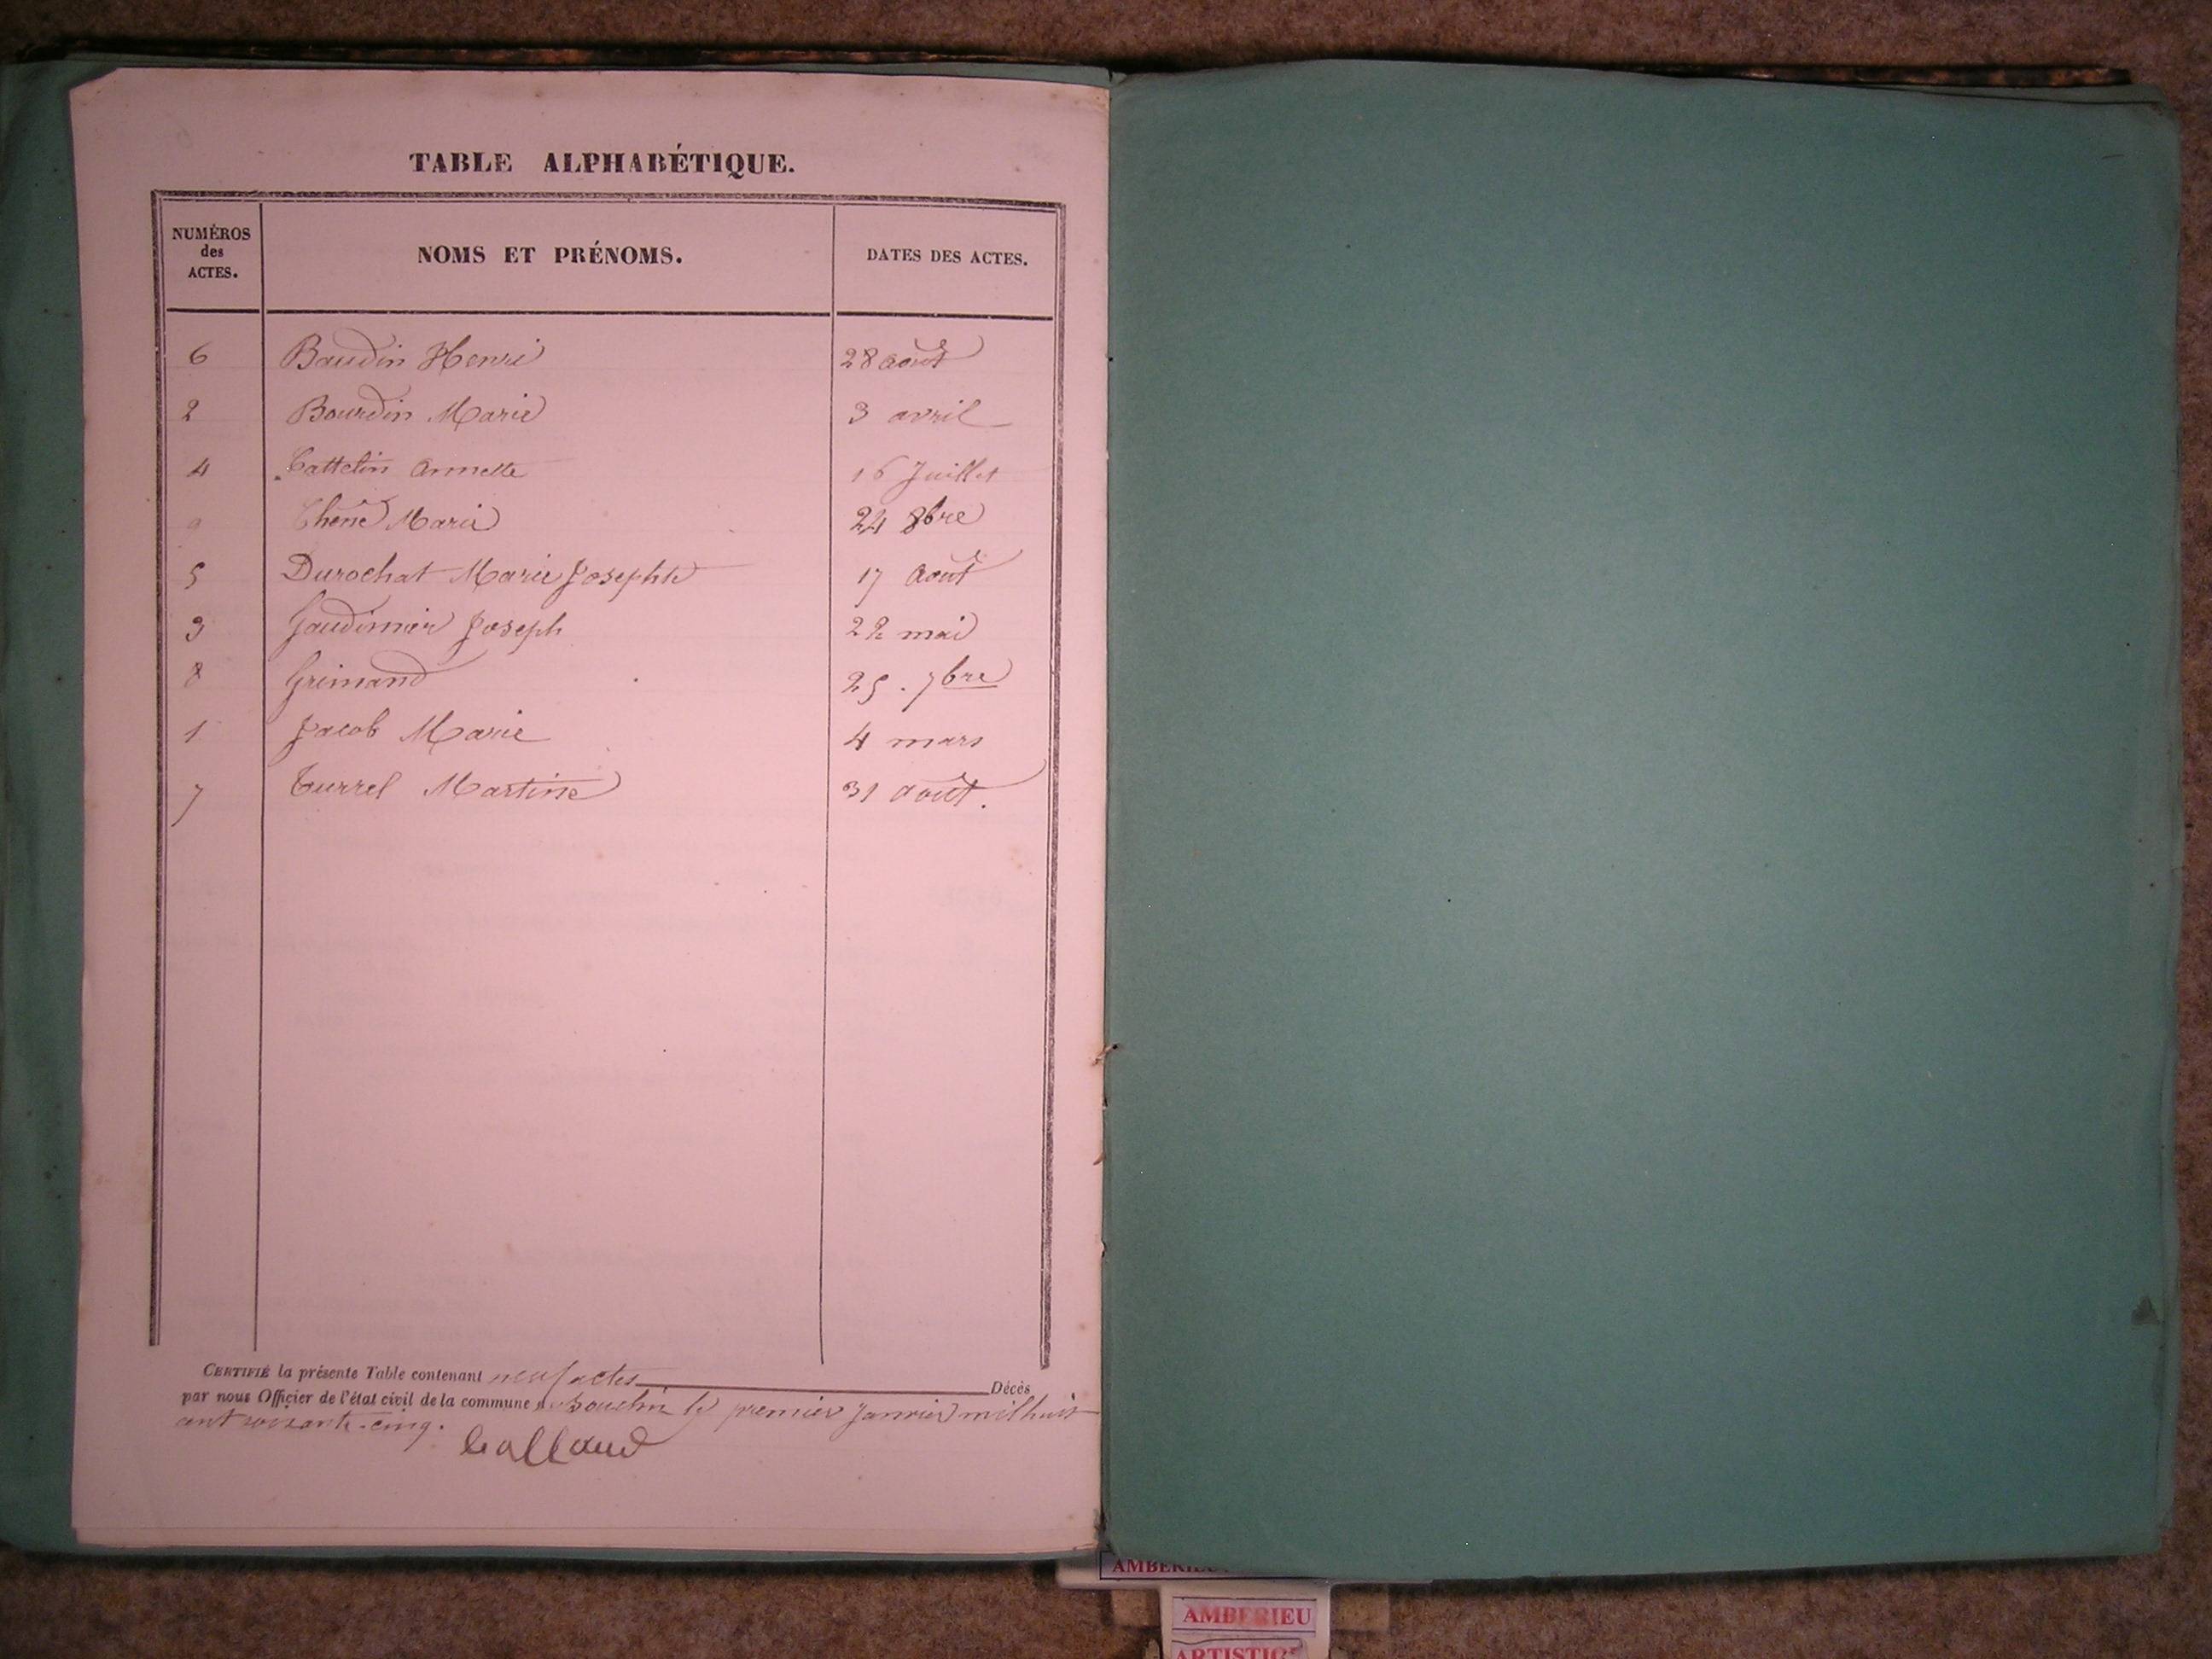 TABLE ALPHABÉTIQUE.
NUMÉROS des ACTES. NOMS ET PRÉNOMS. DATES DES ACTES.
6 Baudin Henri 28 août
2 Bourdin Marie 3 avril
4 Cattelin Annette 16 Juillet
9 Chêne Marie 24 8bre
5 Durochat Marie Josephte 17 Août
3 Gaudinier Joseph 22 mai
8 Grimand 25. 7bre
1 Jacob Marie 4 mars
7 Turrel Martine 31 août.
CERTIFIÉ la présente Table contenant neuf actes Décès
par nous Officier de l'état civil de la commune de Souclin le premier Janvier mil huit
cent soixante-cinq.
AMBERIEU
AMBERIEU